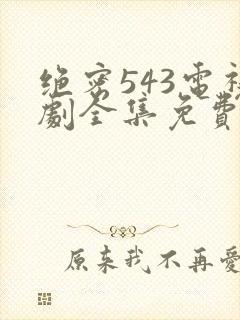 绝密543電視
劇全集免費
原来我不再愛